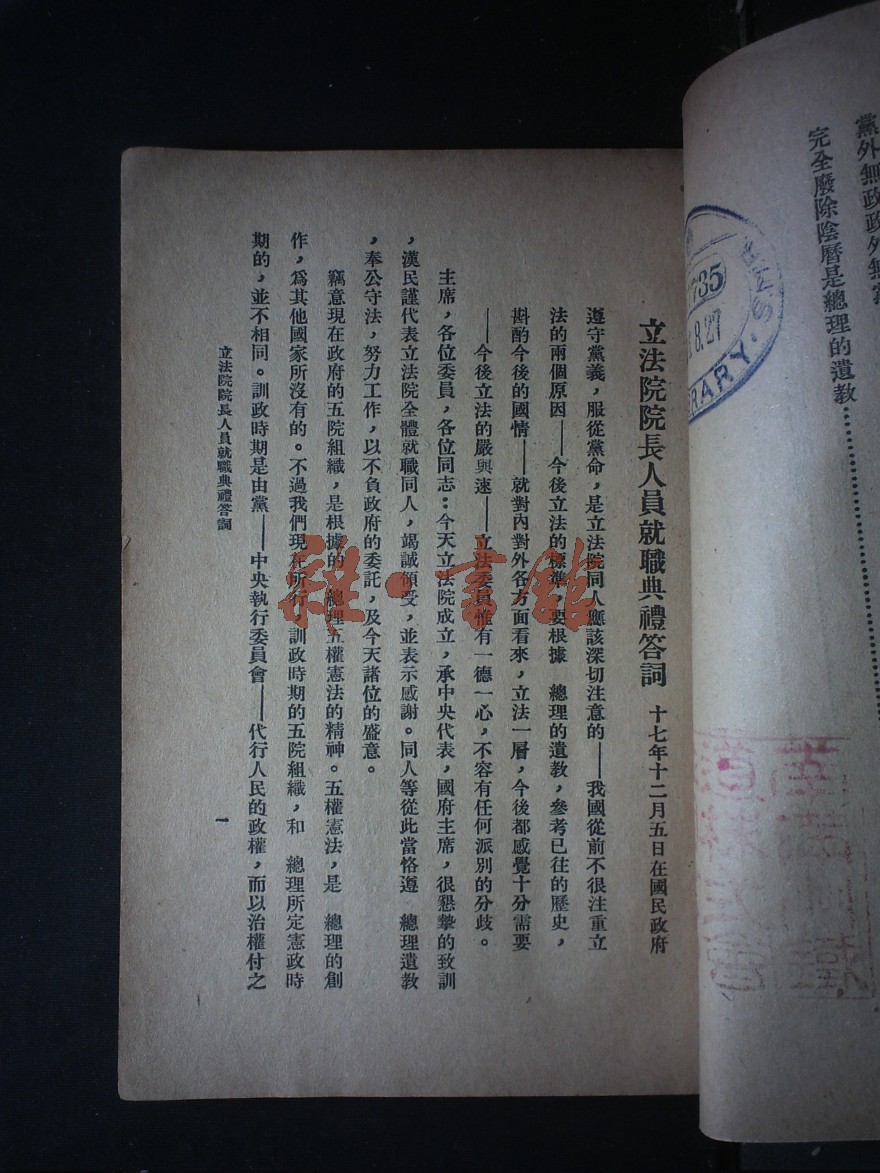 黨外無政政外無黨
完全廢除陰曆是總理的遺教…………
785
8.27
RARY·S
立法院院長人員就職典禮答詞 十七年十二月五日在國民政府
遵守黨義，服從黨命，是立法院同人應該深切注意的——我國從前不很注重立
法的兩個原因——今後立法的標準，要根據 總理的遺教，參考已往的歷史，
斟酌今後的國情——就對內對外各方面看來，立法一層，今後都感覺十分需要
——今後立法的嚴與速——立法委員惟有一德一心，不容有任何派別的分歧。
主席，各位委員，各位同志：今天立法院成立，承中央代表，國府主席，很懇摯的致訓
，漢民謹代表立法院全體就職同人，竭誠領受，並表示感謝。同人等從此當恪遵 總理遺教
，奉公守法，努力工作，以不負政府的委託，及今天諸位的盛意。
竊意現在政府的五院組織，是根據的 總理五權憲法的精神。五權憲法，是 總理的創
作，爲其他國家所沒有的。不過我們現在所行，訓政時期的五院組織，和 總理所定憲政時
期的，並不相同。訓政時期是由黨——中央執行委員會——代行人民的政權，而以治權付之
立法院院長人員就職典禮答詞
一
雜·書館